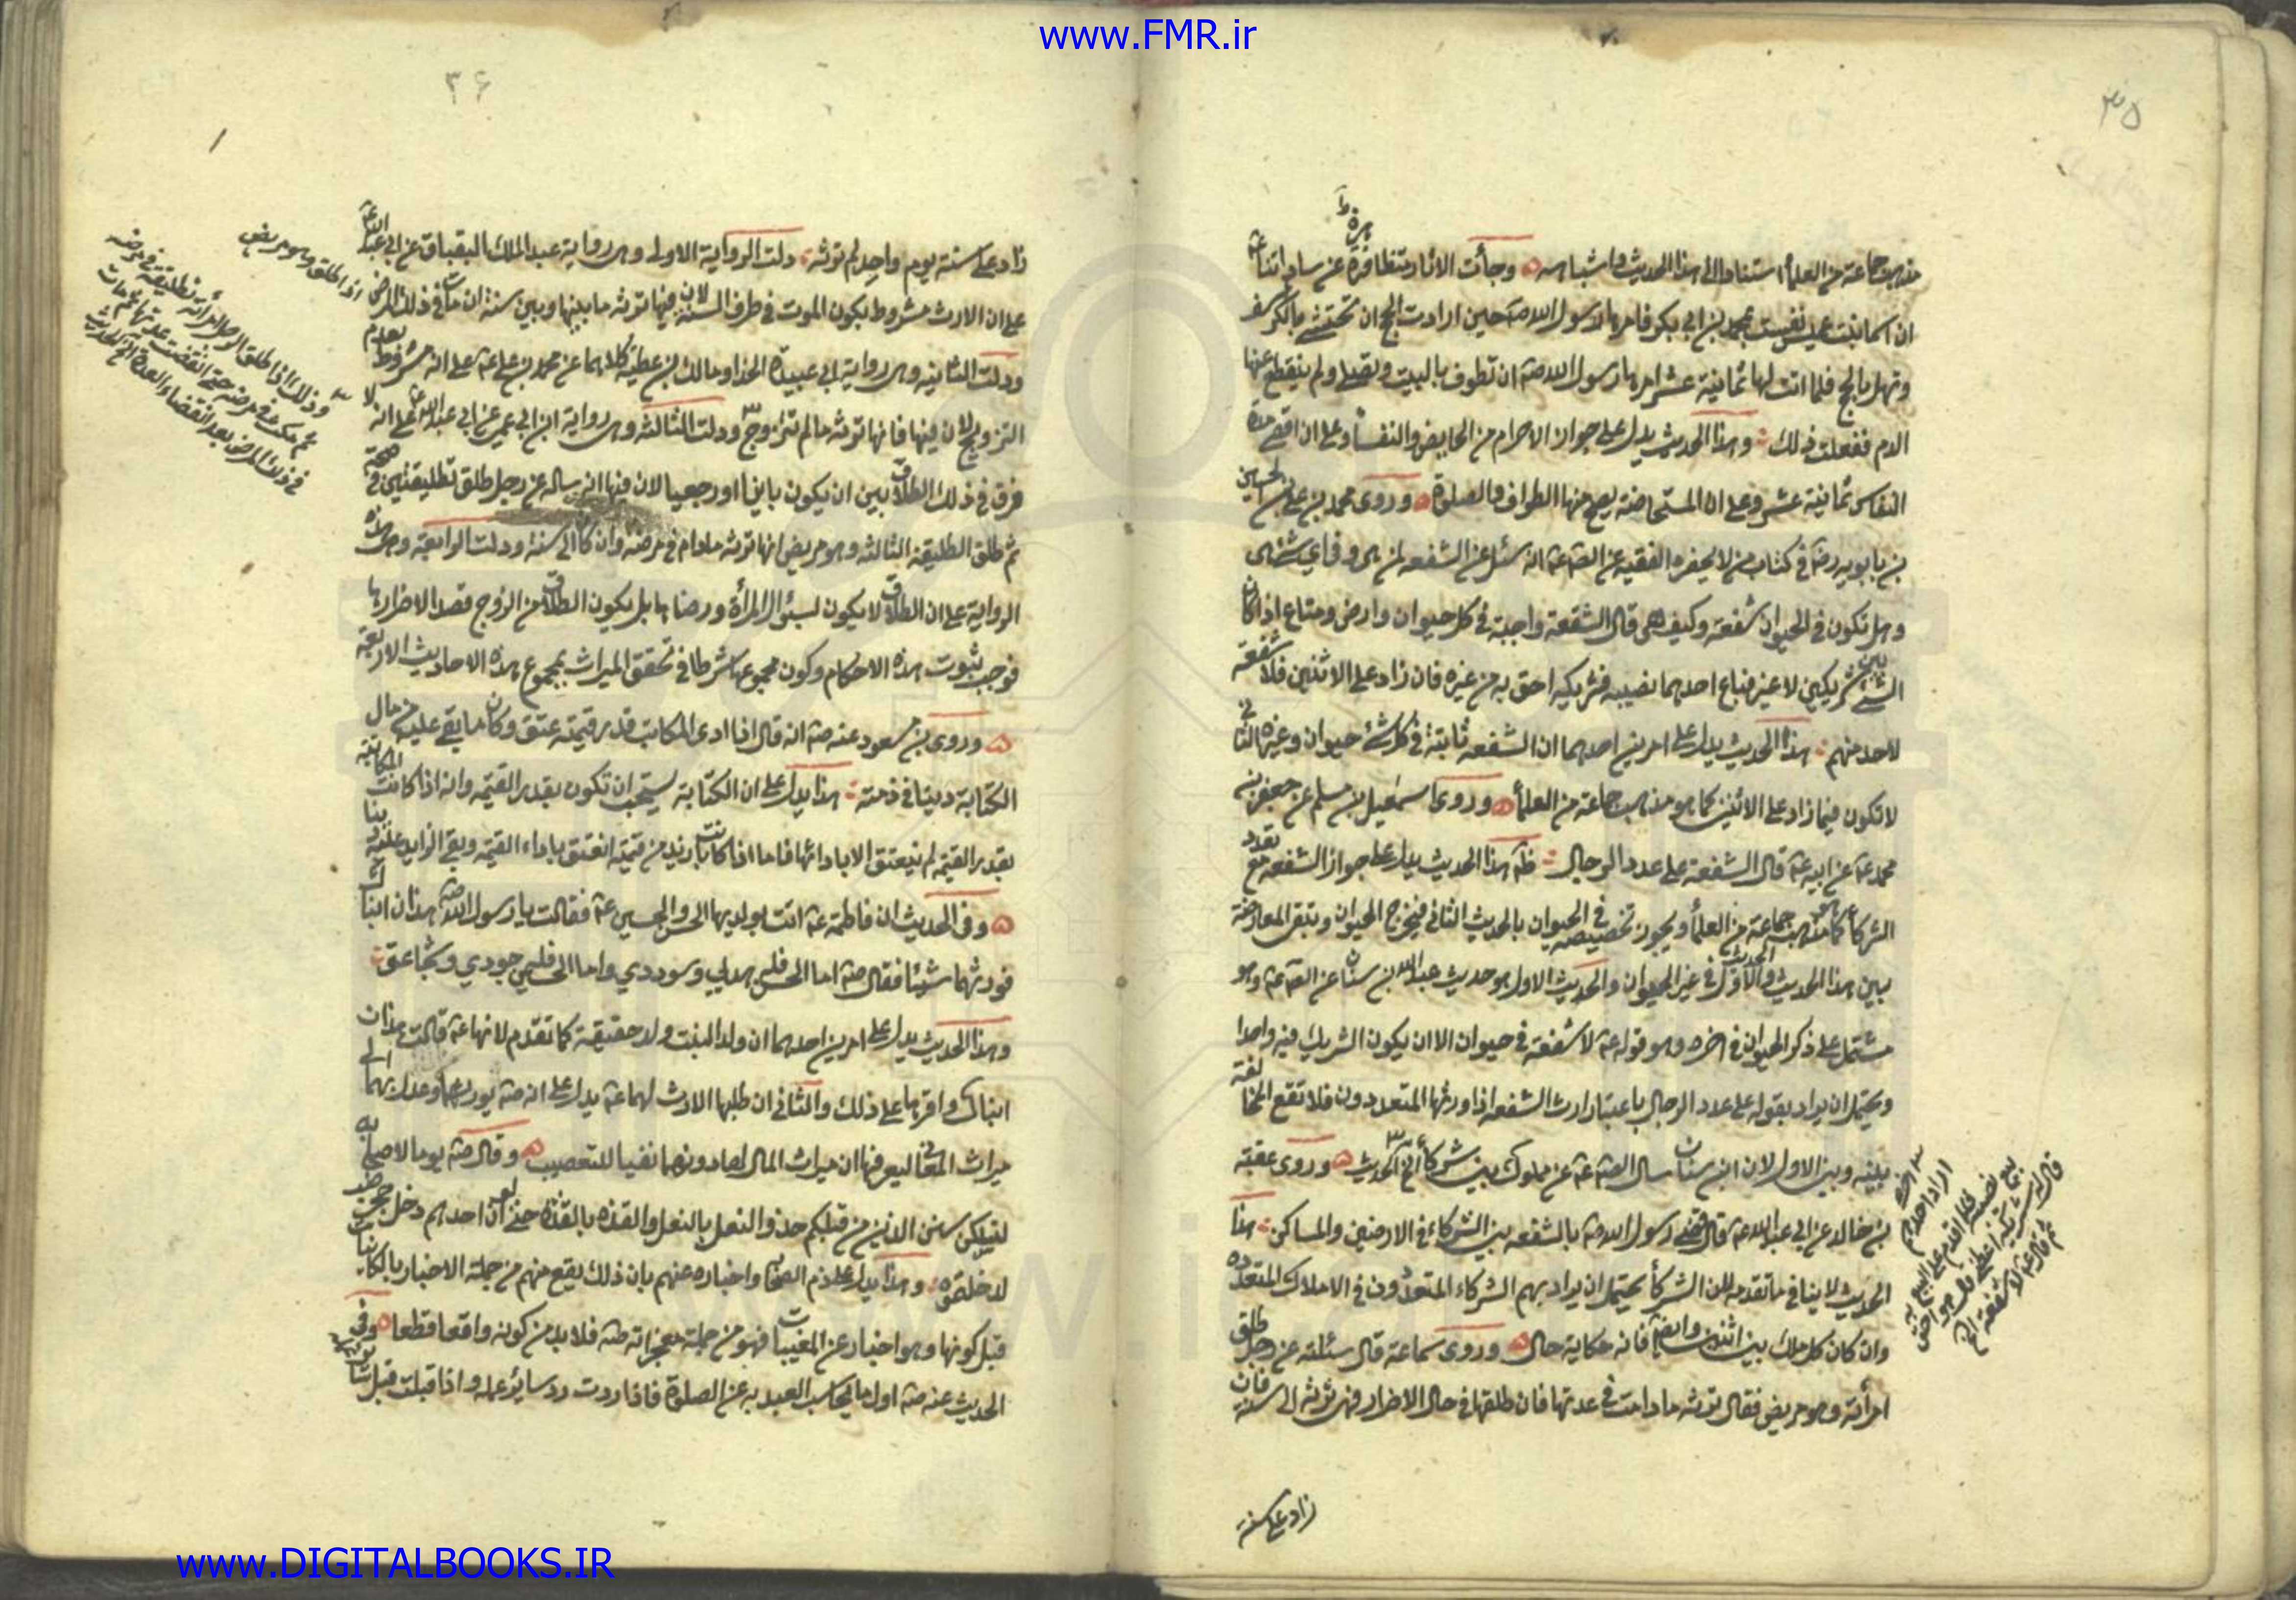 www.FMR.ir
٣٥
مذهب جماعة من العلماء استنادا الى هذا الحديث واشباهه وجأت الاثار متظافرة عن ساداتنا ع
ان اسما بنت عميس نفست بمحمد بن ابي بكر فامرها رسول الله ص حين ارادت الحج ان تحتشي بالكرسف
وتهل بالحج فلما اتت لها ثمانية عشر امرها رسول الله صه ان تطوف بالبيت وتصلي ولم ينقطع عنها
الدم ففعلت ذلك وهذا الحديث يدل على جواز الاحرام من الحايض والنفساء وعلى ان اقصى مدة
النفاس ثمانية عشر وعلى ان المستحاضة يصح منها الطواف والصلوة وروى محمد بن علي بن الحسين
بن بابويه رضه في كتاب من لا يحضره الفقيه عن الصه عه انه سئل عن الشفعه لمن هي وفي اي شئ هي
وهل تكون في الحيوان شفعة وكيف هي قال الشفعة واجبة في كل حيوان وارض ومتاع اذا كان
الشئ بين شريكين لا غير فباع احدهما نصيبه فشريكه احق به من غيره فان زاد على الاثنين فلا شفعة
لاحد منهم هذا الحديث يدل على امرين احدهما ان الشفعه ثابتة في كل شئ حيوان وغيره الثاني
لا تكون فيما زاد على الاثنين كما هو مذهب جماعة من العلماء وروى اسمعيل بن مسلم عن جعفر بن
محمد عه عن ابيه عه قال الشفعة على عدد الرجال هذا الحديث يدل على جواز الشفعه مع تعدد
الشركاء كما هو مذهب جماعة من العلماء ويجوز تخصيصه في الحيوان بالحديث الثاني فيخرج الحيوان وتبقى المعارضة
بين هذا الحديث والحديث الاول في غير الحيوان والحديث الاول هو حديث عبد الله بن سنان عن الصه عه وهو
مشتمل على ذكر الحيوان في اخره وهو قوله عه لا شفعة في حيوان الا ان يكون الشريك فيه واحدا
ويحتمل ان يراد بقوله على عدد الرجال باعتبار ارث الشفعه اذا ورثها المتعددون فلا تقع المخالفة
بينه وبين الاول لان ابن سنان سال الصه عه عن مملوك بين شركاء الخ الحديث وروى عقبة
بن خالد عن ابي عبد الله عه قال قضى رسول الله صه بالشفعه بين الشركاء في الارضين والمساكن هذا
الحديث لا ينافي ما تقدمه لان الشركاء يحتمل ان يراد بهم الشركاء المتعددون في الاملاك المتعدده
وان كان كل ملك بين اثنين فانه حكاية حال وروى سماعة قال سئلته عن رجل طلق
امرأته وهو مريض فقال ترثه ما دامت في عدتها فان طلقها في حال الاضرار فهي ترثه الى سنة فان
زاد على سنة
اراد احدهم
بيع نصيبه
قال لشريكه
ثم قال عه لا شفعة الخ
٣٦
زاد على سنة يوم واحد لم ترثه دلت الرواية الاولى وهي رواية عبد الملك البقباق عن ابي عبد الله ع
على ان الارث مشروط بكون الموت في طرف السنة لان فيها ترثه ما بينها وبين سنة ان مات في ذلك المرض
ودلت الثانيه وهي رواية ابي عبيدة الحذا ومالك بن عطية كلاهما عن محمد بن علي عه على انه مشروط بعدم
التزويج لان فيها فانها ترثه ما لم تتزوج ودلت الثالثه وهي رواية ابن ابي عمير عن ابي عبد الله ع على انه لا
فرق في ذلك الطلاق بين ان يكون باينا او رجعيا لان فيها انه ساله عن رجل طلق تطليقتين في صحة
ثم طلق التطليقة الثالثه وهو مريض انها ترثه مادام في مرضه وان كان الى سنة ودلت الرابعة وهي هذه
الرواية على ان الطلاق لا يكون لسئوال المرأة ورضاها بل يكون الطلاق من الزوج قصد الاضرار بها
فوجب ثبوت هذه الاحكام وكون مجموعها شرطا في تحقق الميراث بمجموع هذه الاحاديث الاربعة
وروى بن مسعود عنه صه انه قال اذا ادى المكاتب قدر قيمته عتق وكان ما بقي عليه من مال
الكتابة دينا في ذمته هذا يدل على ان الكتابة يستحب ان تكون بقدر القيمه وانه اذا كانت المكاتبة
بقدر القيمه لم ينعتق الا بادائها فاما اذا كانت بازيد من قيمته انعتق باداء القيمه وبقي الزايد عليه دينا
وفي الحديث ان فاطمة عه اتت بولديها الحسن والحسين عه فقالت يا رسول الله صه هذان ابناك
فورثهما شيئا فقال صه اما الحسن فله هديي وسوددي واما الحسين فله جودي وشجاعتي
وهذا الحديث يدل على امرين احدهما ان ولد البنت ولد حقيقة كما تقدم لانها عه قالت هذان
ابناك واقرها على ذلك والثاني ان طلبها الارث لهما عه يدل على انه صه يورثهما وعدل بهما الى
ميراث المعالي ليعرفها ان ميراث المال لها دونهما نفيا للتعصيب وقال صه يوما لاصحابه
لتسلكن سنن الذين من قبلكم حذو النعل بالنعل والقذه بالقذه حتى لو ان احدهم دخل جحر ضب
لدخلتموه وهذا يدل على ذم الصحابة واخباره عنهم بان ذلك يقع منهم من جملة الاخبار بالكائنات
قبل كونها وهو اخبار عن المغيبات فهو من جملة معجزاته صه فلا بد من كونه واقعا قطعا وفي
الحديث عنه صه اول ما يحاسب العبد به عن الصلوة فاذا ردت رد سائر عمله واذا قبلت قبل سائر
اذا طلق وهو مريض
وذلك اذا طلق الرجل امرأته تطليقة في مرضه
ثم مكث في مرضه حتى انقضت عدتها ثم مات
في ذلك المرض بعد انقضاء العدة الخ الحديث
www.DIGITALBOOKS.IR